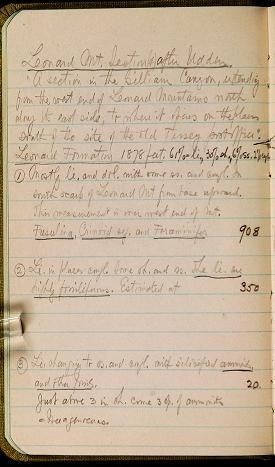 Leonard Mt. Section after Udden.
"A section in the Gilliam Canyon, extending
from the west end of Leonard Mountains north
along its east side, to where it opens on the plains
south of the site of the Old Tessey post office".
Leonard Formation 1878 feet. 61% li., 30% sh., 6% ss.
① Mostly li., and dol. with some ss. and cngl. In
south scarp of Leonard Mt. from base upward.
This measurement is over west end of Mt.
Fusulina, Crinoid sg. and Foraminifer 908
② Li. in places cngl. Some sh. and ss. The li. are
highly fossiliferous. Estimated at 350
③ Li. changing to ss. and cngl. with silicified ammonites
and other fossils. 20.
Just above 3 in sh. come 3 sp. of ammonites